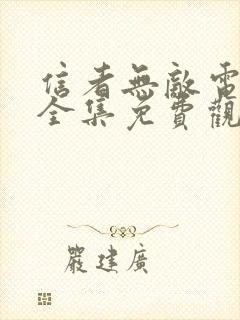 信者無敵電
全集免費觀
嚴建廣